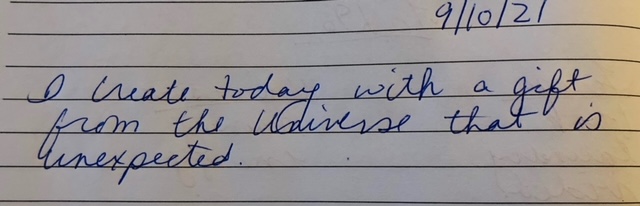 9/10/21
I create today with a gift
from the Universe that is
unexpected.